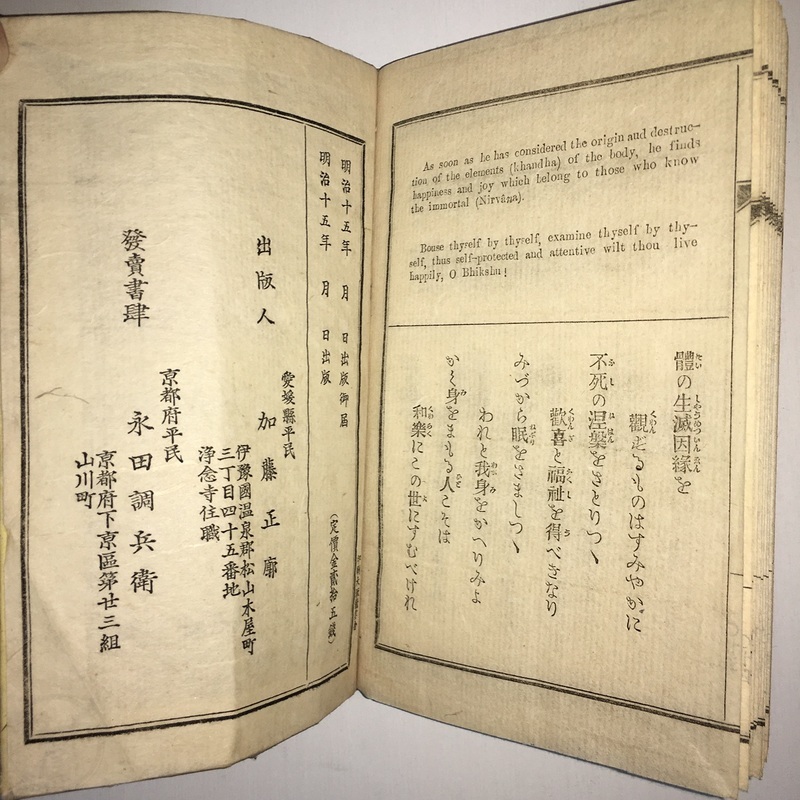 As soon as he has considered the origin aud destruc-
tion of the elements (khandha) of the body, he finds
happiness and joy which belong to those who know
the immortal (Nirvâna).
Bouse thyself by thyself, examine thyself by thy-
self, thus self-protected and attentive wilt thou live
happily, O Bhikshu!
體の生滅因縁を
觀ずるものはすみやかに
不死の涅槃をさとりつゝ
歡喜と福祉を得べきなり
みづから眠をさましつゝ
われと我身をかへりみよ
かく身をまもる人こそは
和樂にこの世にすむべけれ
明治十五年 月 日出版御届
明治十五年 月 日出版
(定價金貳拾五錢)
出版人
愛媛縣平民
加藤正廓
伊豫國温泉郡松山木屋町
三丁目四十五番地
浄念寺住職
發賣書肆
京都府平民
永田調兵衛
京都府下京區第廿三組
山川町